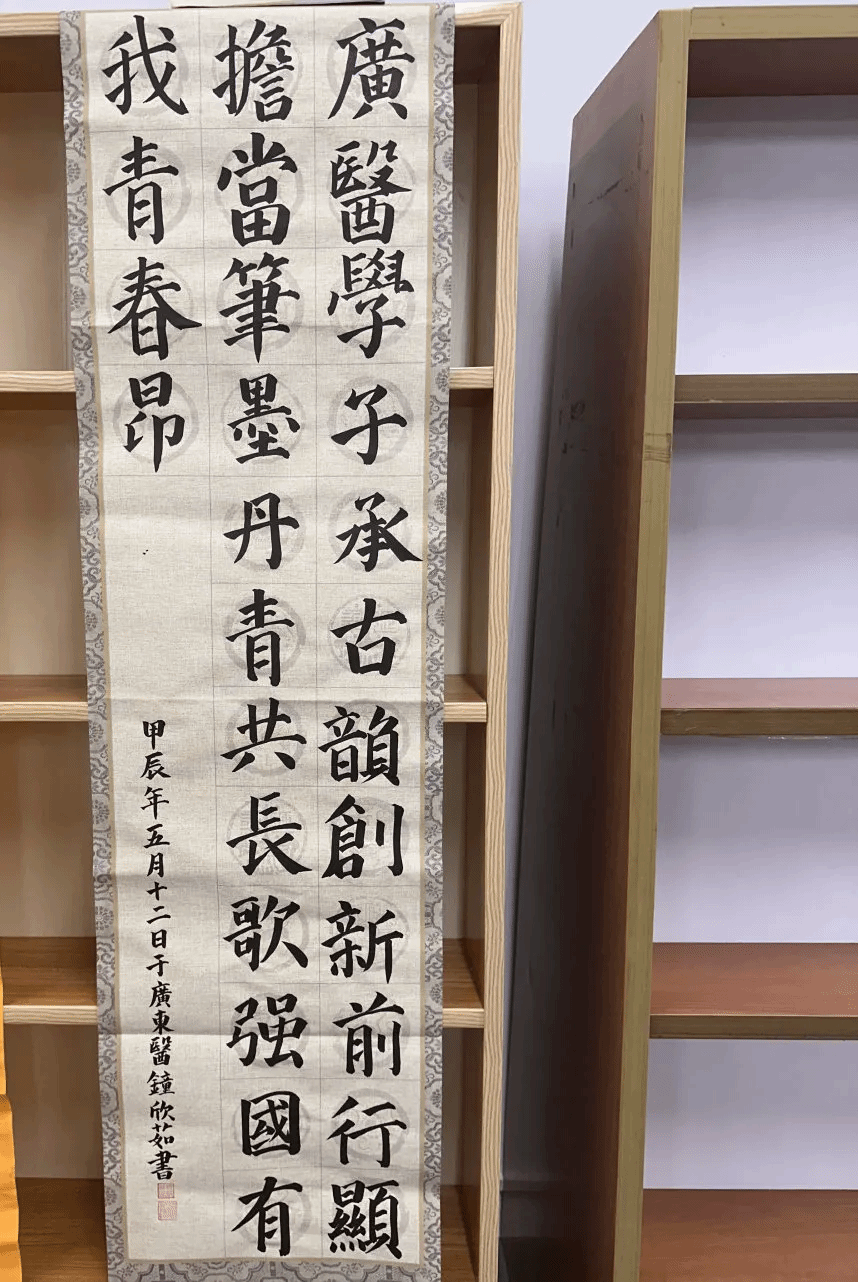 廣醫學子承古韻創新前行顯
擔當筆墨丹青共長歌强國有
我青春昂
甲辰年五月十二日于廣東醫鐘欣茹書